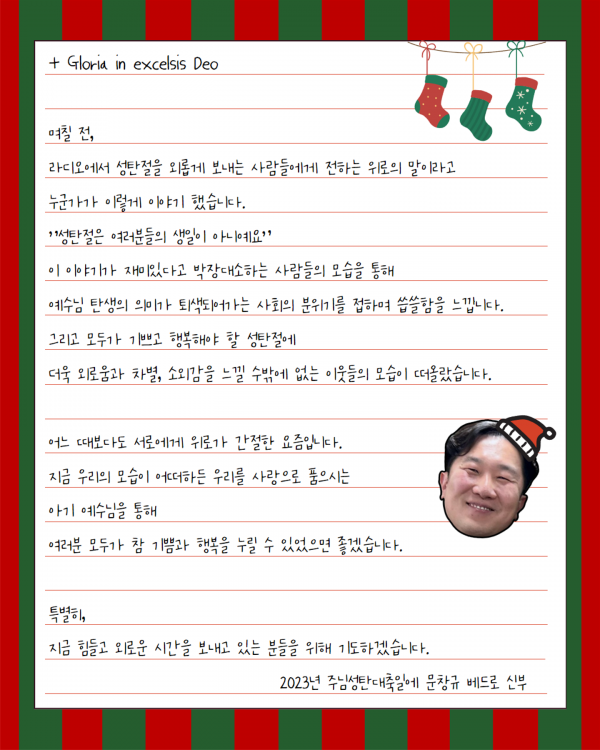 + Gloria in excelsis Deo
며칠 전,
라디오에서 성탄절을 외롭게 보내는 사람들에게 전하는 위로의 말이라고
누군가가 이렇게 이야기 했습니다.
"성탄절은 여러분들의 생일이 아니예요"
이 이야기가 재미있다고 박장대소하는 사람들의 모습을 통해
예수님 탄생의 의미가 퇴색되어가는 사회의 분위기를 접하며 씁쓸함을 느낍니다.
그리고 모두가 기쁘고 행복해야 할 성탄절에
더욱 외로움과 차별, 소외감을 느낄 수밖에 없는 이웃들의 모습이 떠올랐습니다.
어느 때보다도 서로에게 위로가 간절한 요즘입니다.
지금 우리의 모습이 어떠하든 우리를 사랑으로 품으시는
아기 예수님을 통해
여러분 모두가 참 기쁨과 행복을 누릴 수 있었으면 좋겠습니다.
특별히,
지금 힘들고 외로운 시간을 보내고 있는 분들을 위해 기도하겠습니다.
2023년 주님성탄대축일에 문창규 베드로 신부